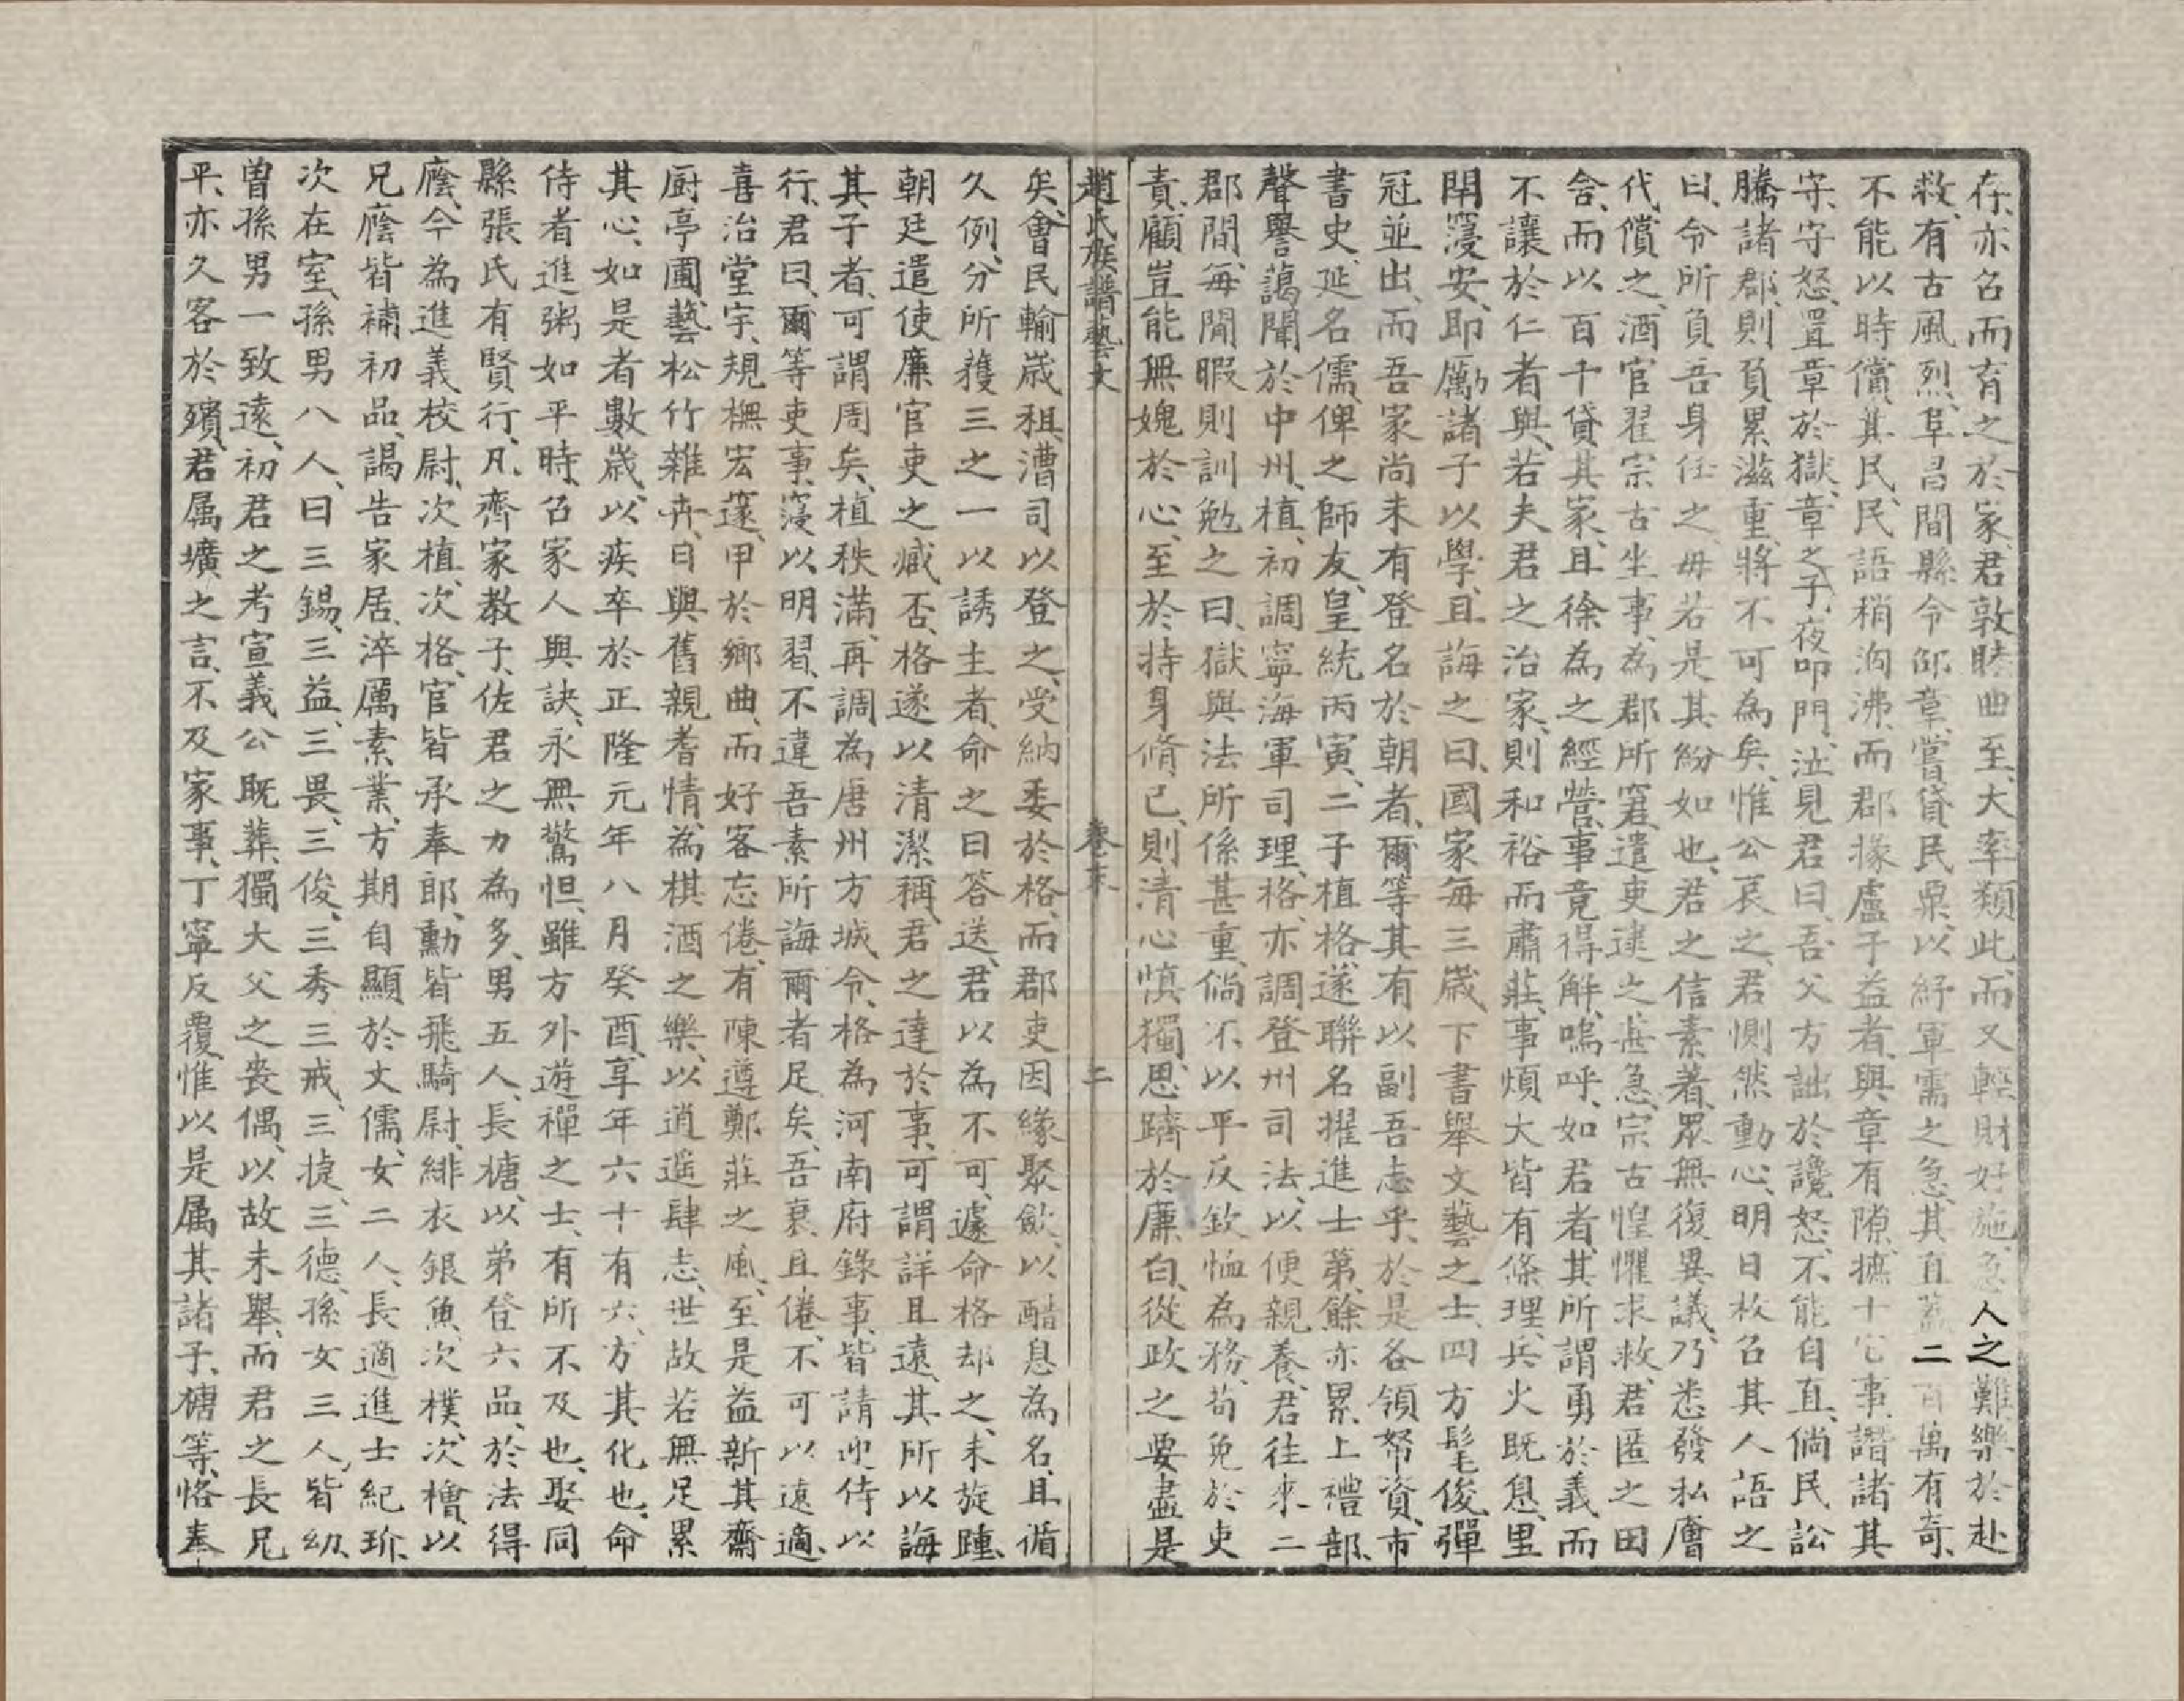 存、亦召而育之於家、君敦睦曲至、大率類此、而又輕財好施、急人之難、樂於赴
救、有古風烈、阜昌間縣令邵章、嘗貸民粟、以紓軍需之急、其直蓋二百萬有奇、
不能以時償、其民、民語稍洶沸、而郡掾盧子益者、與章有隙、摭十它事、譖諸其
守、守怒、置章於獄、章之子、夜叩門、泣見君曰、吾父方詘於讒怒、不能自直、倘民訟
騰諸郡、則負累滋重、將不可為矣、惟公哀之、君惻然動心、明日枚召其人語之
曰、令所負吾身任之、毋若是其紛如也、君之信素著、眾無復異議、乃悉發私廥
代償之、酒官翟宗古坐事、為郡所窘、遣吏逮之、甚急、宗古惶懼求救、君匿之田
舍、而以百千貸其家、且徐為之經營、事竟得解、嗚呼、如君者、其所謂勇於義、而
不讓於仁者與、若夫君之治家、則和裕而肅莊、事煩大皆有條理、兵火既息、里
閈寖安、即厲諸子以學、且誨之曰、國家每三歲下書舉文藝之士、四方髦俊、彈
冠並出、而吾家尚未有登名於朝者、爾等其有以副吾志乎、於是各領帑資、市
書史、延名儒、俾之師友、皇統丙寅、二子植格、遂聯名擢進士第、餘亦累上禮部、
聲譽藹聞於中州、植、初調寧海軍司理、格、亦調登州司法、以便親養、君往來二
郡間、每閒暇則訓勉之曰、獄與法所係甚重、倘不以平反欽恤為務、苟免於吏
責、顧豈能無媿於心、至於持身脩己、則清心慎獨、思躋於廉白、從政之要盡是
趙氏族譜藝文　卷末　二
矣、會民輸歲租、漕司以登之、受納委於格、而郡吏因緣聚斂、以醋息為名、且循
久例、分所獲三之一以誘主者、命之曰答送、君以為不可、遽命格却之、未旋踵、
朝廷遣使廉官吏之臧否、格遂以清潔稱、君之達於事、可謂詳且遠、其所以誨
其子者、可謂周矣、植秩滿、再調、為唐州方城令、格為河南府錄事、皆請迎侍以
行、君曰、爾等吏事、寖以明習、不違吾素所誨爾者足矣、吾衰、且倦、不可以遠適、
喜治堂宇、規橅宏邃、甲於鄉曲、而好客忘倦、有陳遵鄭莊之風、至是益新其齋
厨亭圃、藝松竹雜卉、日與舊親耆情、為棋酒之樂、以逍遥肆志、世故若無足累
其心、如是者數歲、以疾卒於正隆元年八月癸酉、享年六十有六、方其化也、命
侍者進粥如平時、召家人與訣、永無驚怛、雖方外遊禪之士、有所不及也、娶同
縣張氏有賢行、凡齊家教子、佐君之力為多、男五人、長榶、以弟登六品、於法得
廕、今為進義校尉、次植、次格、官皆承奉郎、勳皆飛騎尉、緋衣銀魚、次樸、次檜以
兄廕皆補初品、謁告家居、淬厲素業、方期自顯於文儒、女二人、長適進士紀玠、
次在室、孫男八人、曰三錫、三益、三畏、三俊、三秀三戒、三㨗、三德、孫女三人、皆幼、
曾孫男一致遠、初君之考宣義公既葬、獨大父之喪偶、以故未舉、而君之長兄
平、亦久客於殯、君属壙之言、不及家事、丁寧反覆、惟以是属其諸子、榶等、恪奉